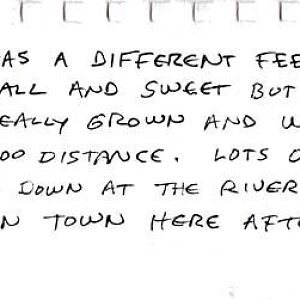 AS A DIFFERENT FEE
ALL AND SWEET BUT
EALLY GROWN AND W
OO DISTANCE. LOTS O
DOWN AT THE RIVER
N TOWN HERE AFT